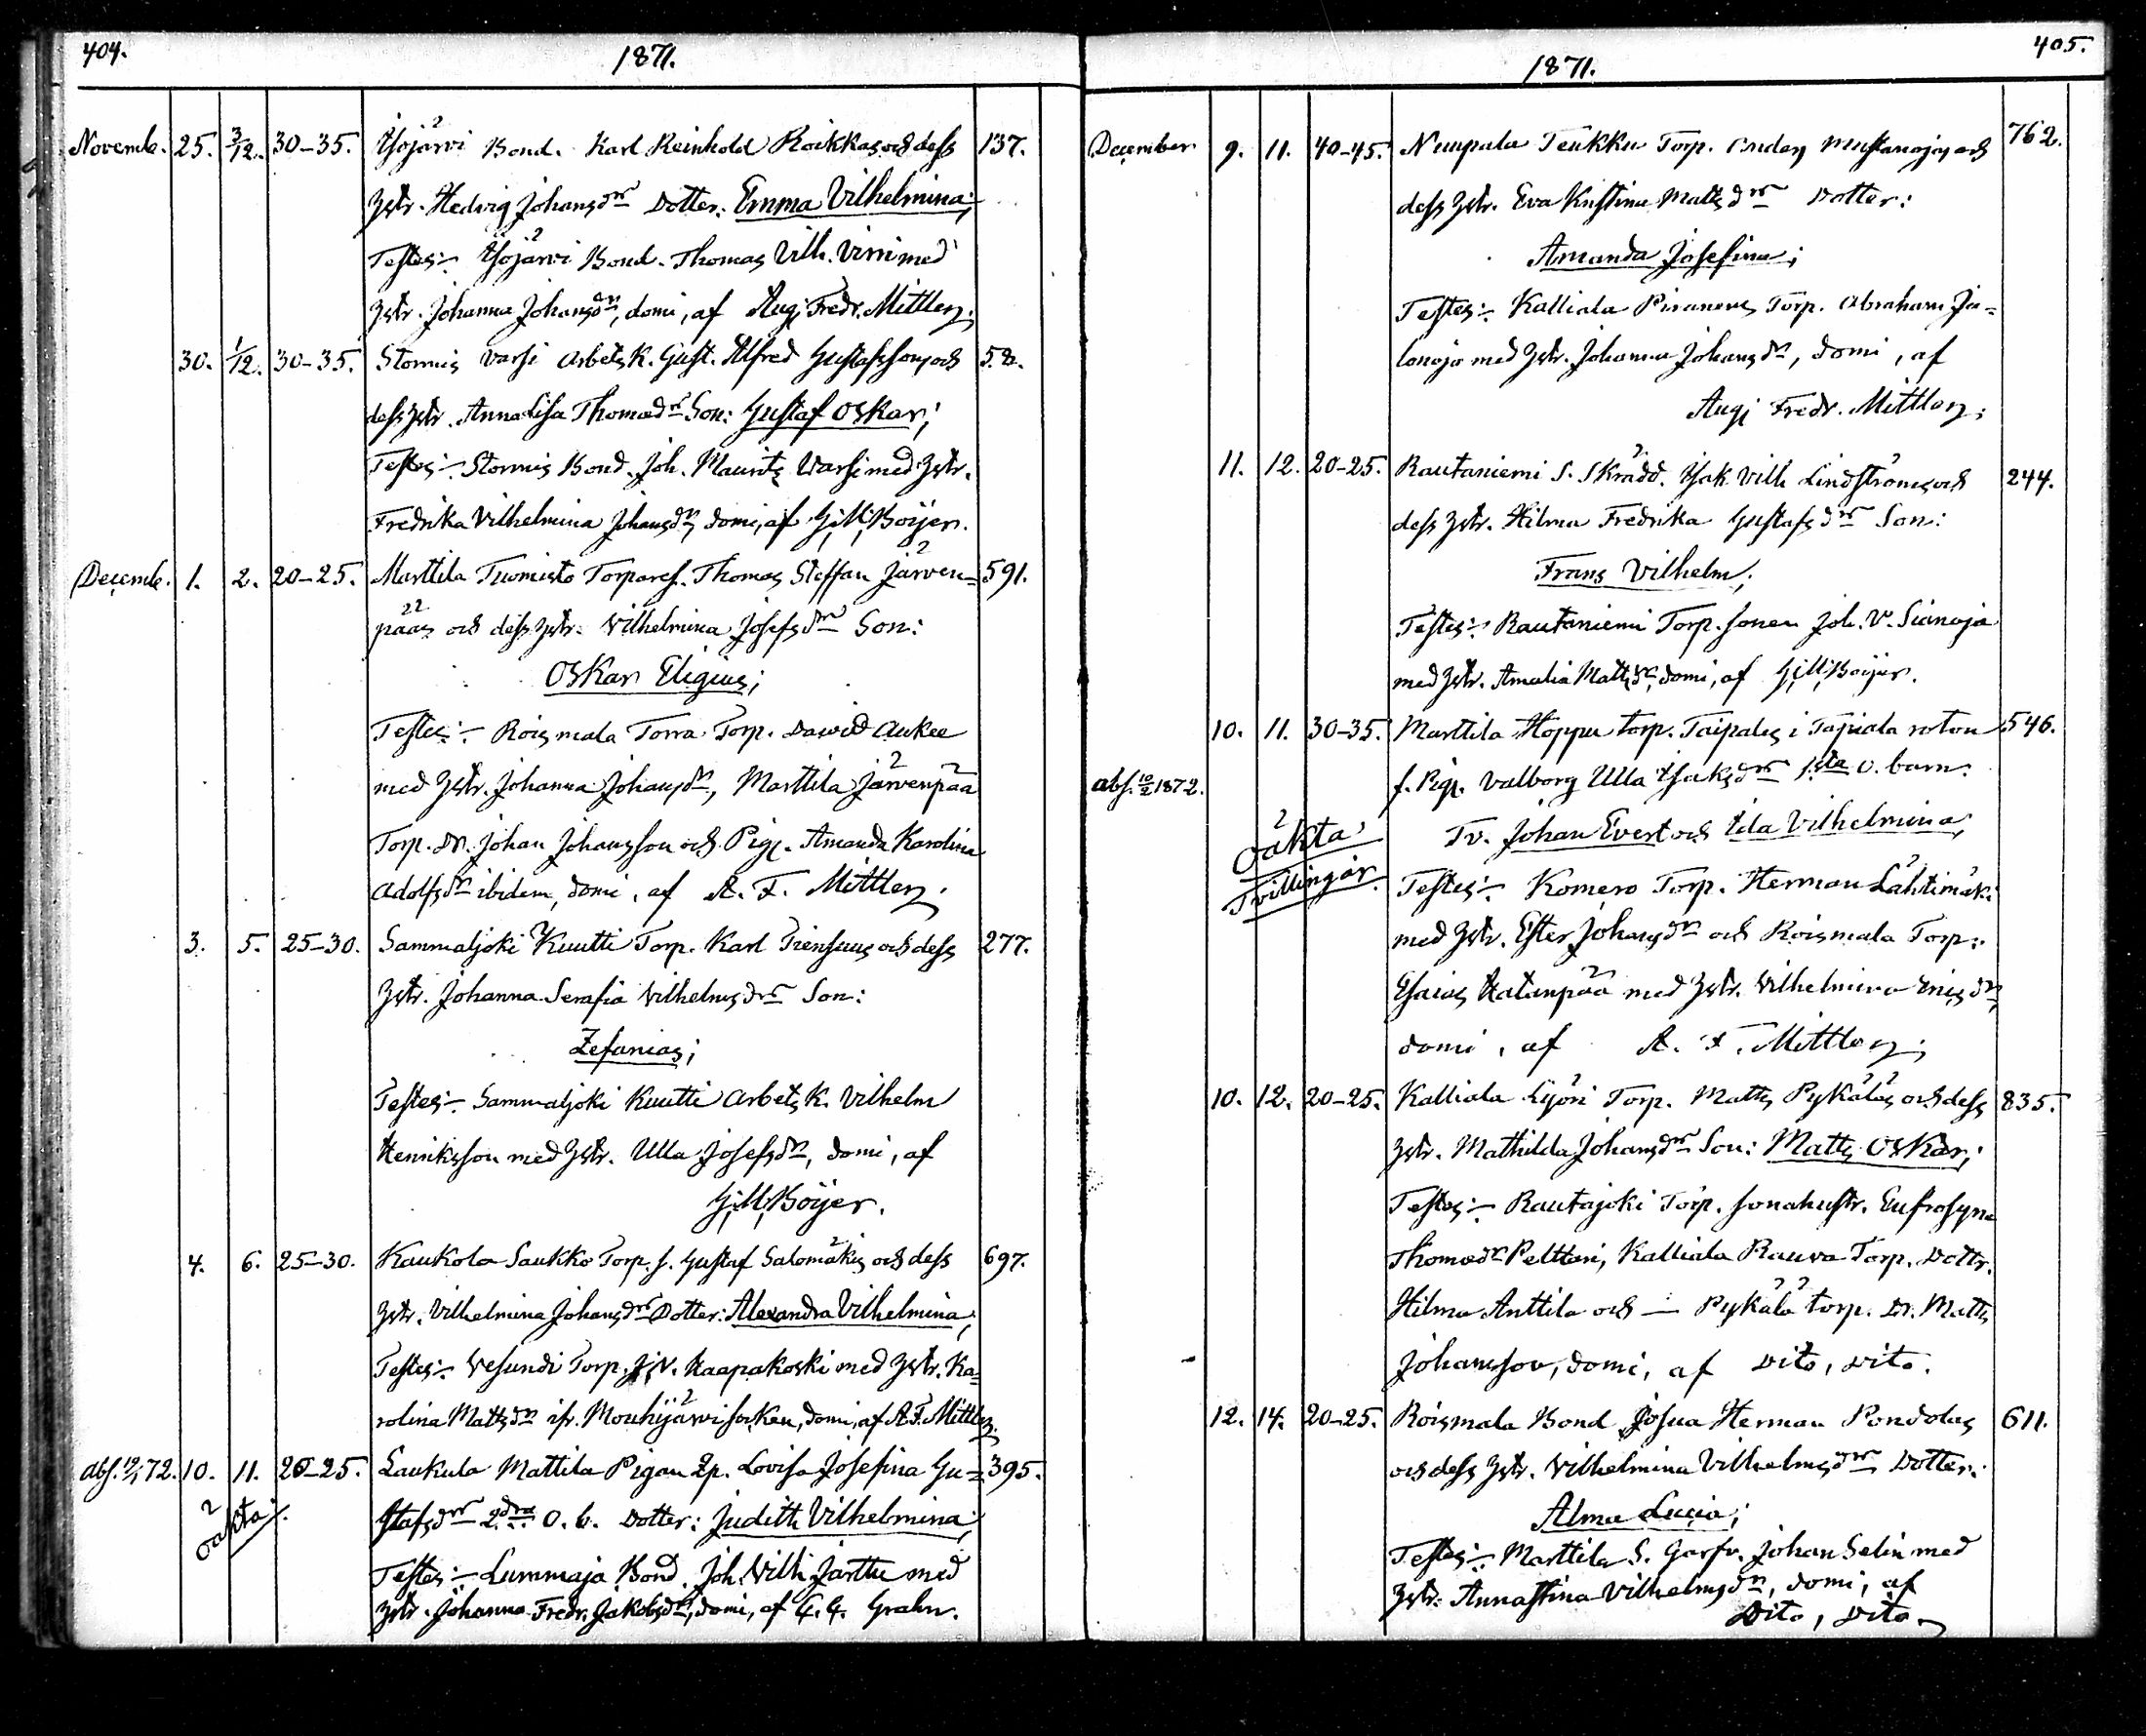 404.
1871.
Novemb. 25. 3/12. 30–35. Ylöjärvi Bond. Karl Reinhold Roikkas och dess 137.
hstr. Hedvig Johansdr Dotter: Emma Vilhelmina;
Testes:– Bond. Thomas Vilh. med
hstr. Johanna Johansdr, domi, af Aug. Fredr. Mittler.
30. 1/12. 30–35. Stormis Varsi Arbets K. Gust. Alfred Gustafsson och 58.
dess hstr. Anna Lisa Thomadr Son: Gustaf Oskar;
Testes:– Stormis Bond. Joh. Maurits Varsi med hstr.
Fredrika Vilhelmina Johansdr, domi, af G. M. Boijer.
Decemb. 1. 2. 20–25. Marttila Tuomisto Torparef. Thomas Steffan Järven= 591.
pääs och dess hstr. Vilhelmina Josefsdr Son:
Oskar Eligius;
Testes:– Roismala Torra Torp. David Aukee
med hstr. Johanna Johansdr, Marttila Järvenpää
Torp. dr. Johan Johansson och Pig. Amanda Karolina
Adolfsdr ibidem, domi, af A. F. Mittler.
3. 5. 25–30. Sammaljoki Kuutti Torp. Karl och dess 277.
hstr. Johanna Serafia Vilhelmsdr Son:
Zefanias;
Testes:– Sammaljoki Kuutti Arbets K. Vilhelm
Henriksson med hstr. Ulla Josefsdr, domi, af
G. M. Boijer.
4. 6. 25–30. Kaukola Saukko Torp. s. Gustaf Salomäkis och dess 697.
hstr. Vilhelmina Johansdr Dotter: Alexandra Vilhelmina;
Testes:– Vesundi Torp. J. V. Haapakoski med hstr. Ka=
rolina Mattsdr ifr. Mouhijärvi socken, domi, af A. F. Mittler.
abs. 72. 10. 11. 20–25. Laukula Mattila Pigan Lovisa Josefina Gu= 395.
oäkta
stafsdr 2dra o. b. Dotter: Judith Vilhelmina;
Testes:– Lummaja Bond. Joh. Vilh. Jarttu med
hstr. Johanna Fredr. Jakobsdr, domi, af G. G. Grahn.
405.
1871.
December 9. 11. 40–45. Nuupala Teukku Torp. Mustanojas och 762.
dess hstr. Eva Kristina Mattsdr Dotter:
Amanda Josefina;
Testes:– Kalliala Piranens Torp. Abraham Ja=
lonoja med hstr. Johanna Johansdr, domi, af
Aug. Fredr. Mittler.
11. 12. 20–25. Rautaniemi S. Skrädd. Isak Vilh Lindströms och 244.
dess hstr. Hilma Fredrika Gustafsdr Son:
Frans Vilhelm;
Testes:– Rautaniemi Torp. sonen Joh. V. Sianoja
med hstr. Amalia Mattsdr, domi, af G. M. Boijer.
10. 11. 30–35. Marttila Hoppu torp. Taipales i Tapiala roten 546.
abs. 10/2 1872.
f. Pig. Valborg Ulla Isaksdr 1sta o. barn:
oäkta
Tvillingar.
Tv. Johan Evert och Ida Vilhelmina;
Testes:– Komero Torp. Herman Lähtimäki
med hstr. Ester Johansdr och Roismala Torp:
Esaias Hatanpää med hstr. Vilhelmina Enisdr,
domi, af A. F. Mittler;
10. 12. 20–25. Kalliala Lyöri Torp. Matts Pykäläs och dess 835.
hstr. Mathilda Johansdr Son: Matts Oskar;
Testes:– Rautajoki Torp. sonahustr. Eufrosyne
Thomasdr Pelttari, Kalliala Rauva Torp. Dottr.
Hilma Anttila och — Pykälä torp. Dr. Matts
Johansson, domi, af Dito, Dito.
12. 14. 20–25. Roismala Bond Josua Herman Pondolas 611.
och dess hstr. Vilhelmina Vilhelmsdr, Dotter:
Alma Lucia;
Testes:– Marttila S. Garfv. Johan Selin med
hstr. Annastina Vilhelmsdr, domi, af
Dito, Dito.